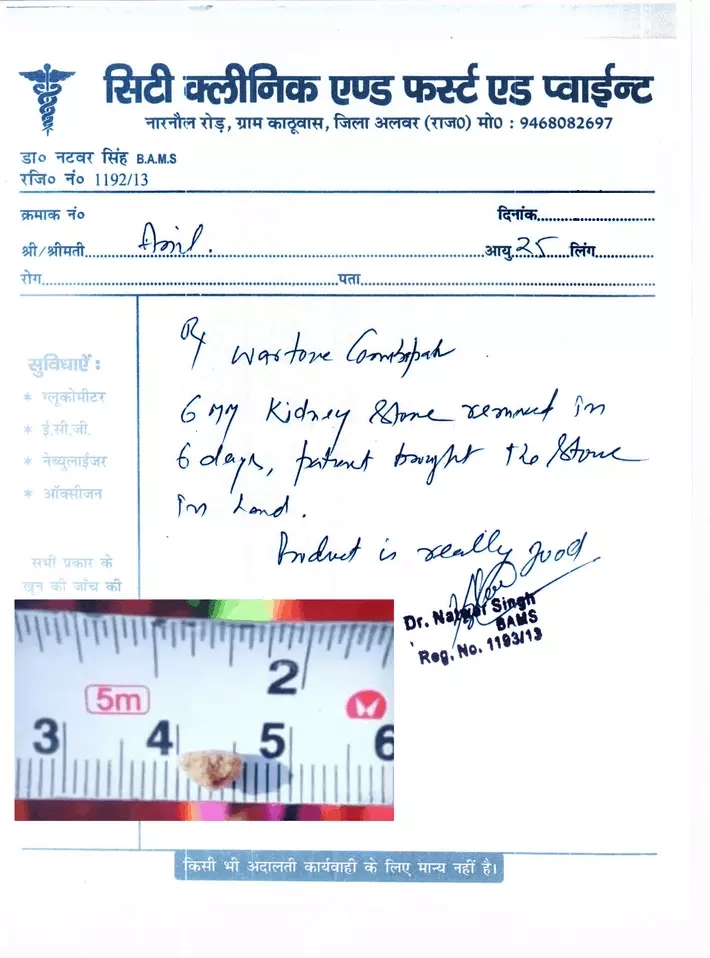 सिटी क्लीनिक एण्ड फर्स्ट एड प्वाईन्ट
नारनौल रोड़, ग्राम काठूवास, जिला अलवर (राज0) मो0 : 9468082697
डा० नटवर सिंह B.A.M.S
रजि० नं० 1192/13
क्रमाक नं०
दिनांक
श्री/श्रीमती Anil. आयु 25 लिंग
रोग पता
सुविधाऐं :
* ग्लूकोमीटर
* ई.सी.जी.
* नेब्युलाईजर
* ऑक्सीजन
सभी प्रकार के
खून की जाँच की
Rx Wartone Combipak
6 MM Kidney Stone removed in
6 days, patient bought the stone
in hand.
Product is really good
Dr. Natwar Singh
BAMS
Reg. No. 1193/13
2
5m
3 4 5 6
किसी भी अदालती कार्यवाही के लिए मान्य नहीं है।